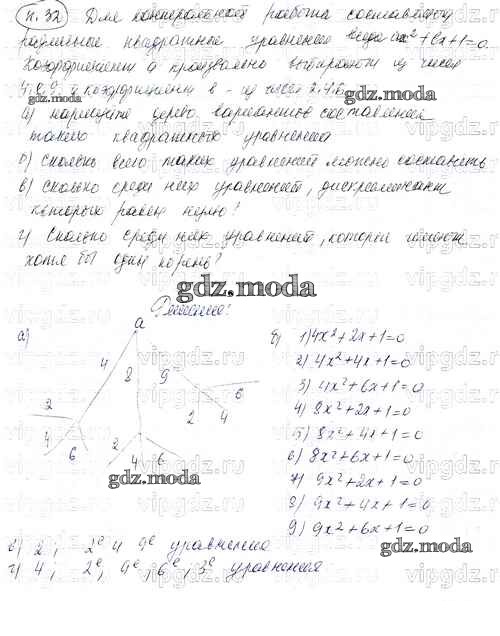 п. 32 Для контрольной работы составляют
различные квадратные уравнения вида ax²+bx+1=0.
Коэффициент a произвольно выбирают из чисел
4,8,9, а коэффициент в - из чисел 2,4,6.
а) нарисуйте дерево вариантов составления
такого квадратного уравнения
б) сколько всего таких уравнений можно составить
в) сколько среди них уравнений, дискриминант
которых равен нулю?
г) сколько среди них уравнений, которые имеют
хотя бы один корень?
gdz.moda
Решение:
а)
a
4 8 9
2 4 6
2 4 6
2 4 6
gdz.moda
б) 1) 4x²+2x+1=0
2) 4x²+4x+1=0
3) 4x²+6x+1=0
4) 8x²+2x+1=0
5) 8x²+4x+1=0
6) 8x²+6x+1=0
7) 9x²+2x+1=0
8) 9x²+4x+1=0
9) 9x²+6x+1=0
gdz.moda
в) 2; 2е и 9е уравнения
г) 4; 2е, 9е, 6е, 3е уравнения
vipgdz.ru